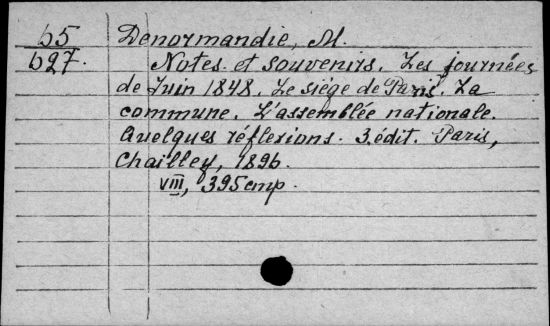 55 Denormandie, M.
527. Notes et souvenirs. Les journées
de Juin 1848. Le siége de Paris. La
commune. L'assemblée nationale.
Quelques réflexions. 3. édit. Paris,
Chailley, 1896.
VIII, 395 стр.